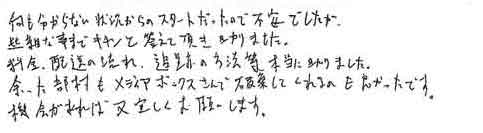 何も分からない状況からのスタートだったので不安でしたが、
些細な事までキチンと答えて頂き助かりました。
料金、配送の流れ、追跡の方法等本当に助かりました。
余った部材もメディアボックスさんで破棄してくれるのも良かったです。
機会があれば又宜しくお願いします。